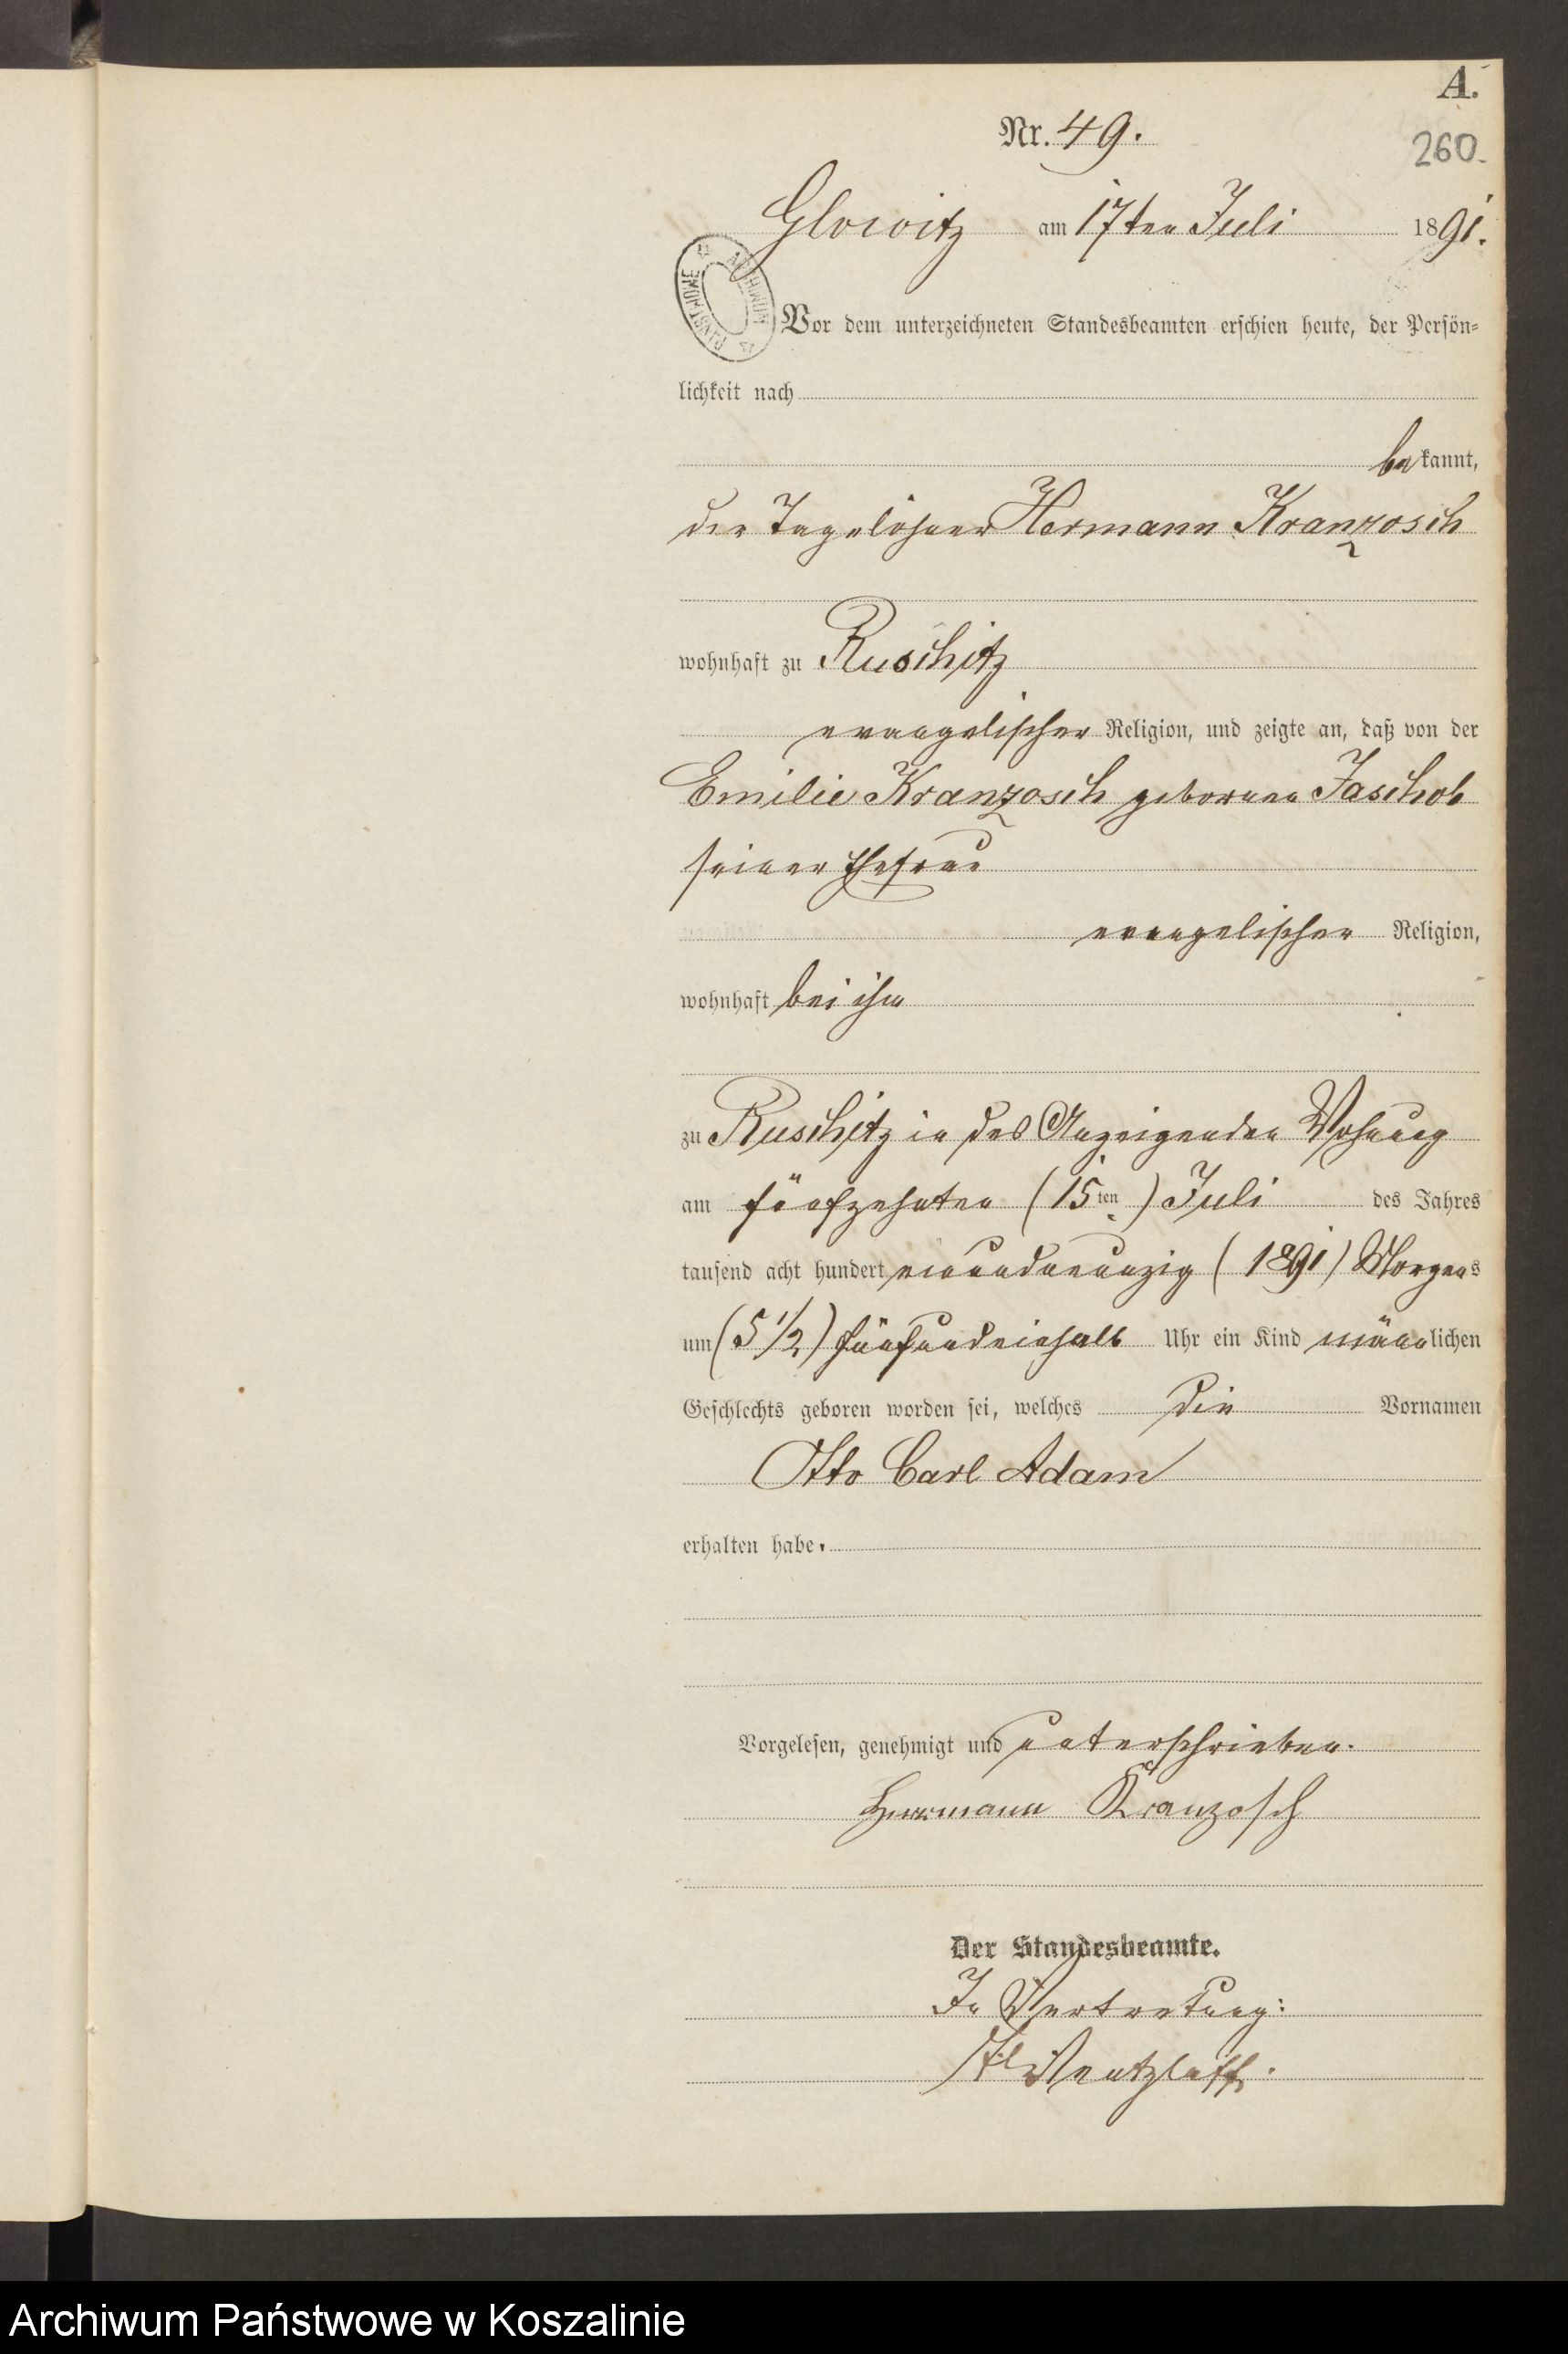 A.
Nr. 49.
260.
Glowitz am 17ten Juli 1891.
Vor dem unterzeichneten Standesbeamten erschien heute, der Persön-
lichkeit nach
bekannt,
der Tagelöhner Hermann Kranzosch
wohnhaft zu Ruschitz
evangelischer Religion, und zeigte an, daß von der
Emilie Kranzosch geborene Jaschob
seiner Ehefrau
evangelischer Religion,
wohnhaft bei ihm
zu Ruschitz in des Anzeigenden Wohnung
am fünfzehnten (15ten) Juli des Jahres
tausend acht hundert einundneunzig (1891) Morgens
um (5 1/2) fünfundeinhalb Uhr ein Kind männlichen
Geschlechts geboren worden sei, welches die Vornamen
Otto Carl Adam
erhalten habe.
Vorgelesen, genehmigt und unterschrieben.
Herrmann Kranzosch
Der Standesbeamte.
In Vertretung:
Wentzlaff.
Archiwum Państwowe w Koszalinie